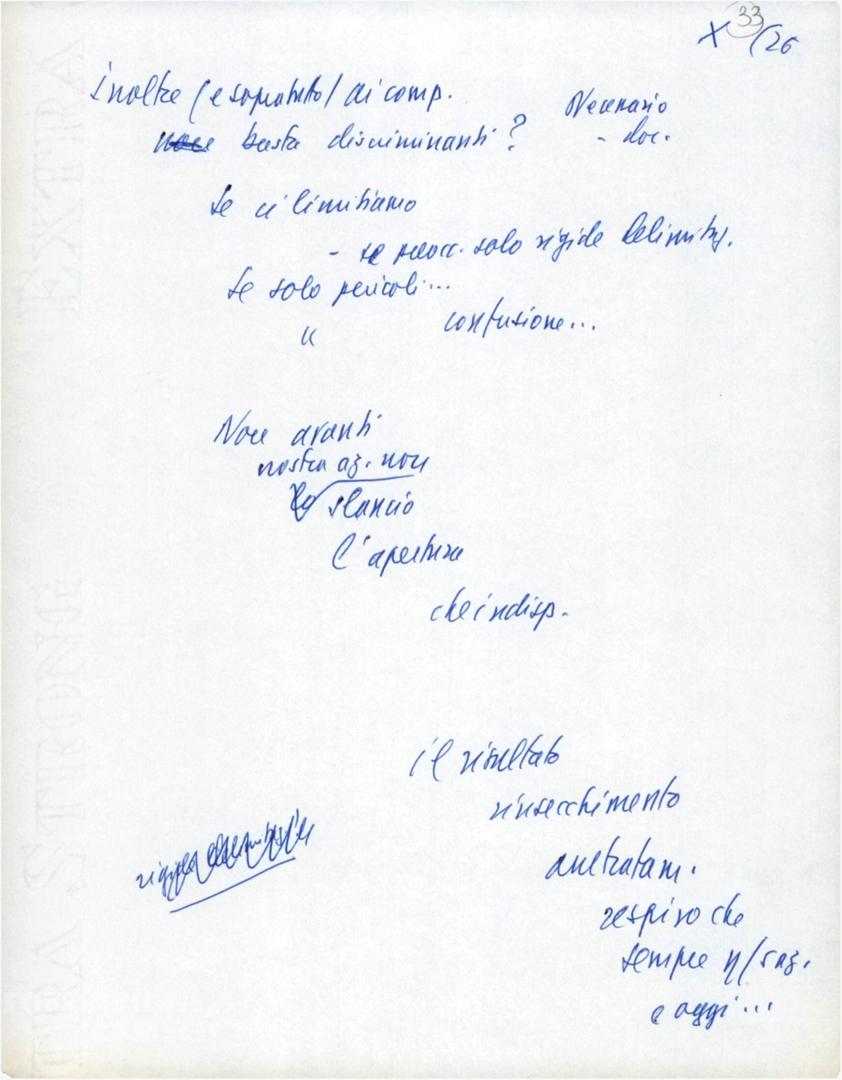 X 33 /26
Inoltre (e sopratutto) ai comp.
non basta discriminanti? Necessario
- doc.
Se ci limitiamo
- se preocc. solo rigide delimitaz.
Se solo pericoli...
" confusione...
Non avanti
nostra az. non
lo slancio
l'apertura
che indisp.
il risultato
rinsecchimento
arretram.
respiro che
sempre n/ raz.
e oggi...